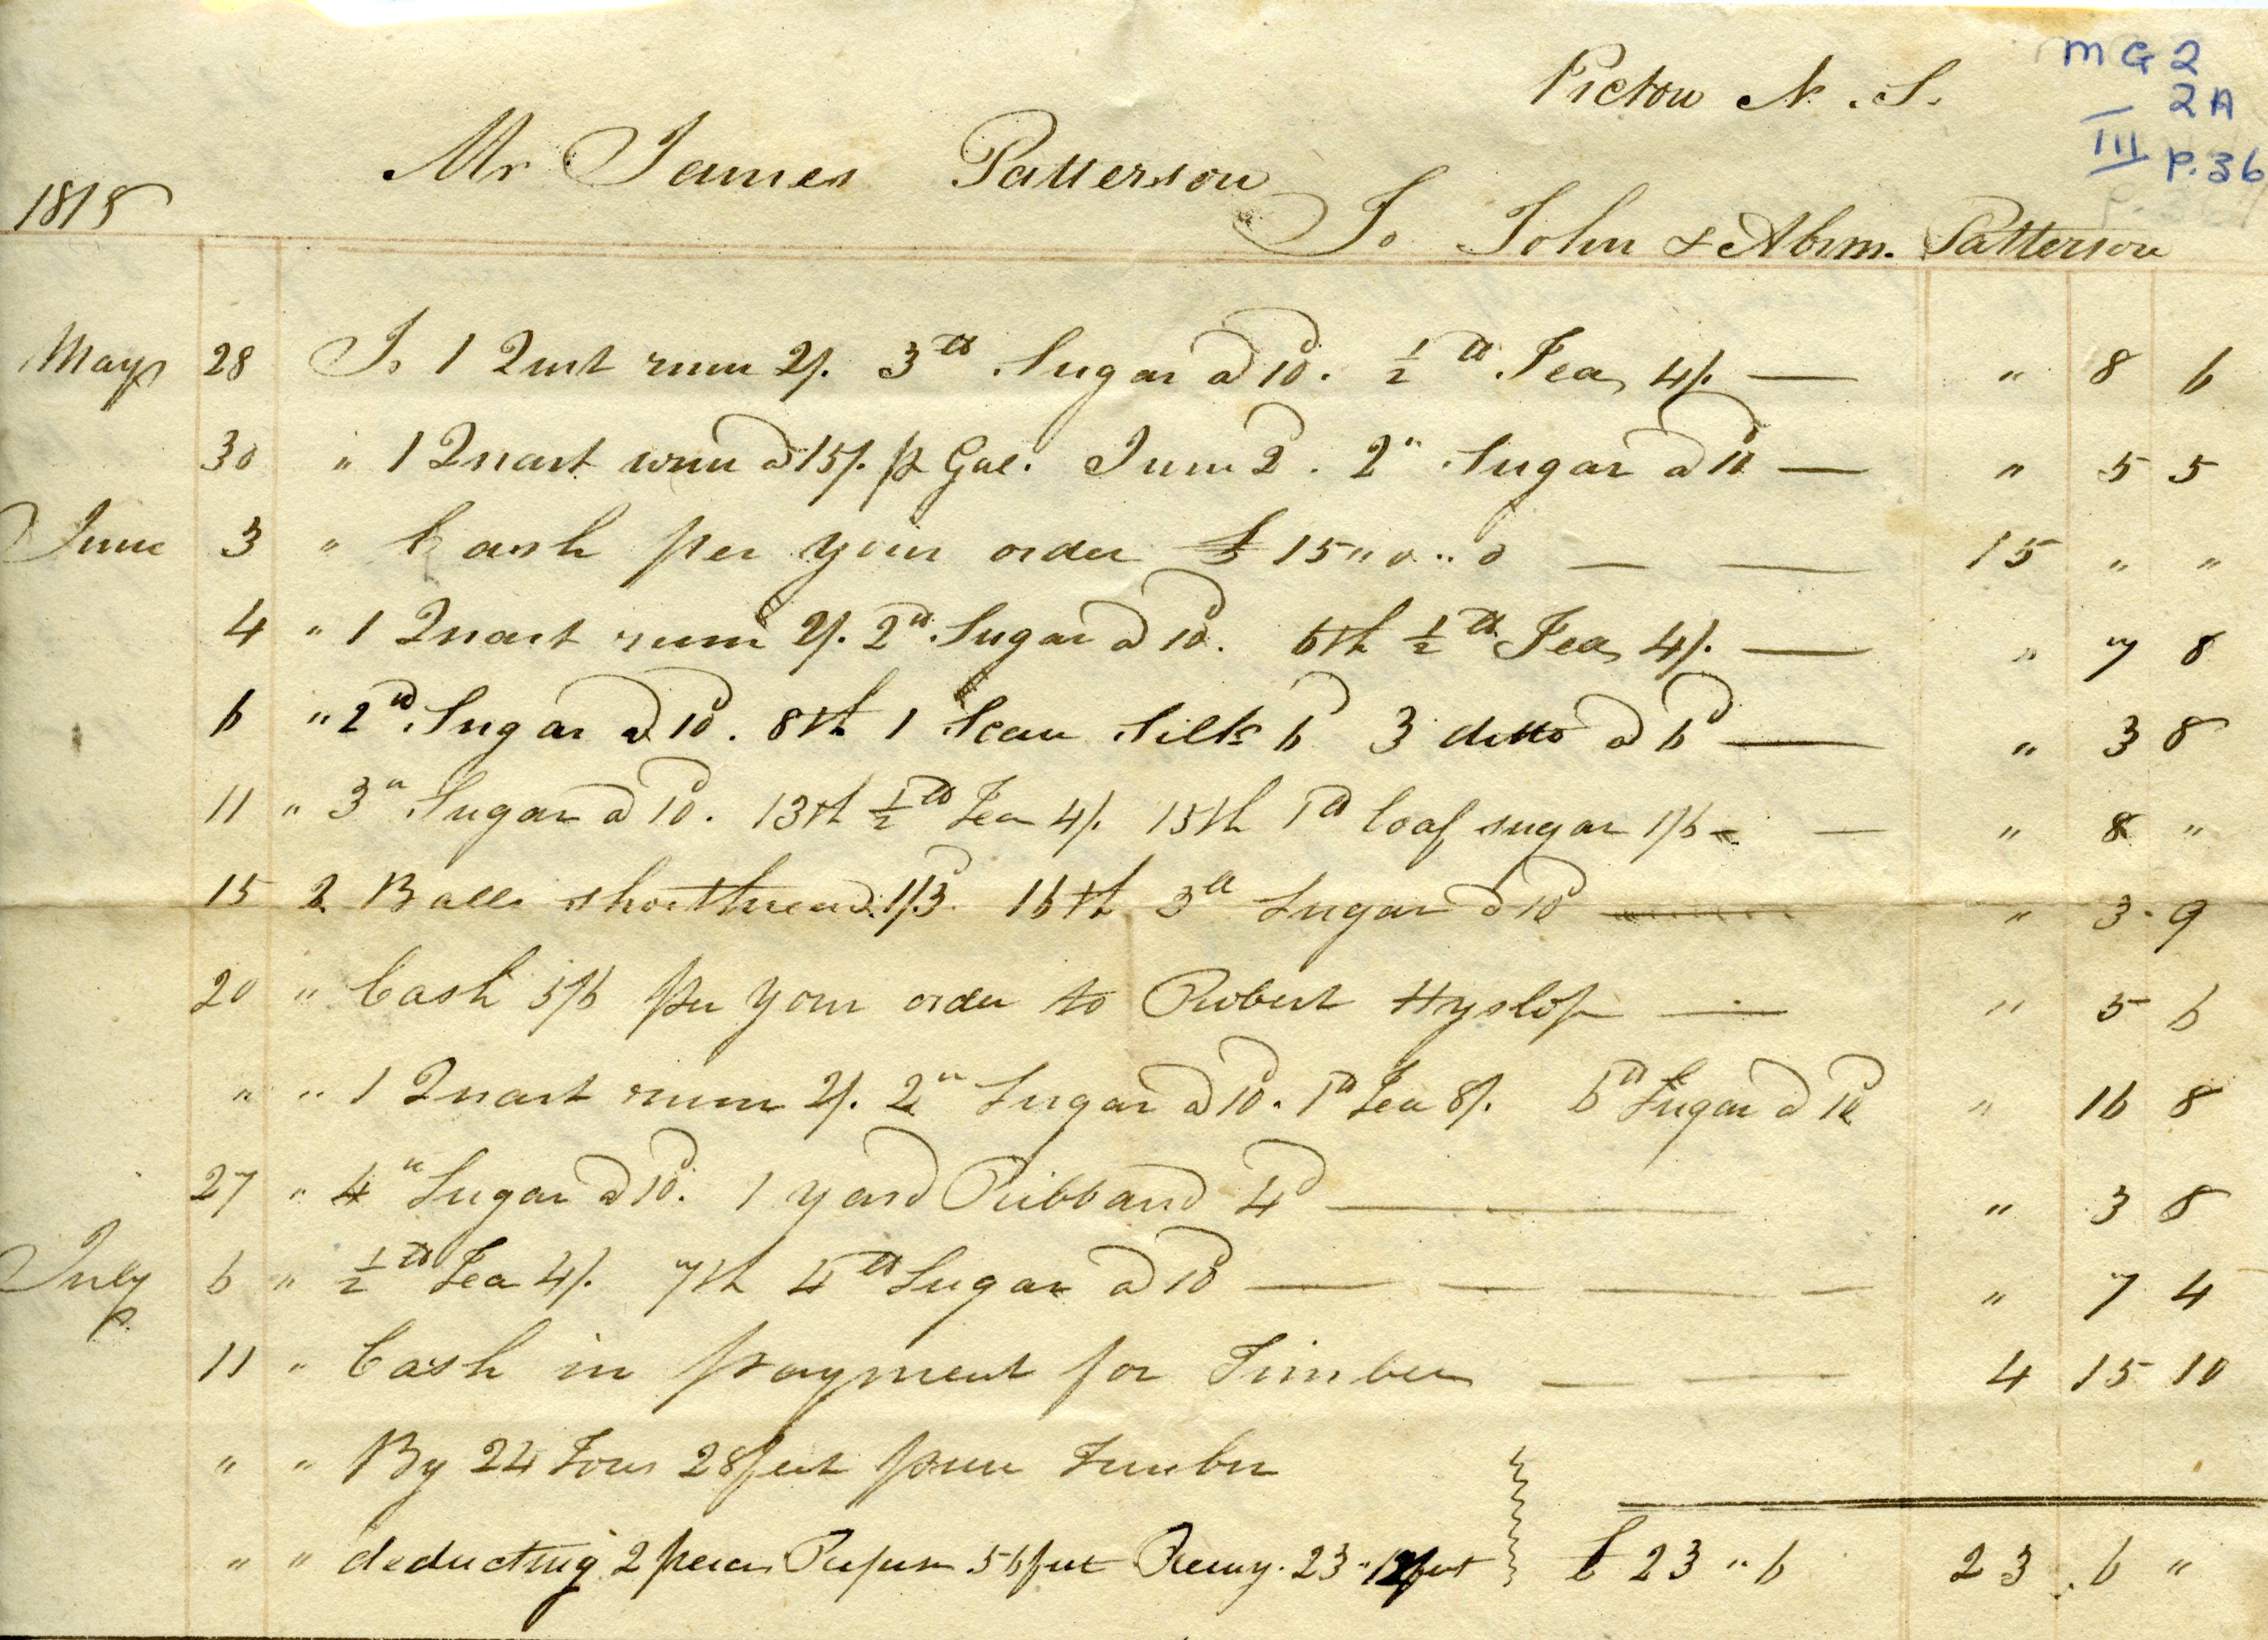 Pictou N. S.
MG 2
2A
III
P. 36
Mr James Patterson
1815
To John & Abrm. Patterson
May 28 To 1 Qurt rum 2/. 3 lb Sugar @ 10d. ½ lb Tea 4/. — " 8 6
30 " 1 Quart @ 15/. p Gal. June 2. 2 " Sugar @ 10d — " 5 5
June 3 " Cash per your order £ 15 " 0 " 0 — — 15 " "
4 " 1 Quart rum 2/. 2 lb Sugar @ 10d. 6th ½ lb Tea 4/. — " 7 8
6 " 2 lb Sugar @ 10d. 8th 1 Scan Silk 6d 3 ditto @ 6d — " 3 8
11 " 3 " Sugar @ 10d. 13th ½ lb Tea 4/. 15th 1 lb loaf sugar 1/6 — " 8 "
15 2 Balls shoethread 1/3d 16th 3 lb Sugar @ 10d — " 3 - 9
20 " Cash 5/6 per your order to Robert Hyslop — " 5 6
" " 1 Quart rum 2/. 2 " Sugar @ 10d. 1 lb Tea 8/. 6 lb Sugar @ 10d " 16 8
27 " 4 " Sugar @ 10d. 1 yard Ribband 4d — " 3 8
July 6 " ½ lb Tea 4/. 7th 4 lb Sugar @ 10d — — — — " 7 4
11 " Cash in payment for Timber — — 4 15 10
" " By 24 Tons 28 feet pine Timber
" " deducting 2 peices Refuse 56 feet Remg. 23 " 12 feet £ 23 " 6 23 . 6 "